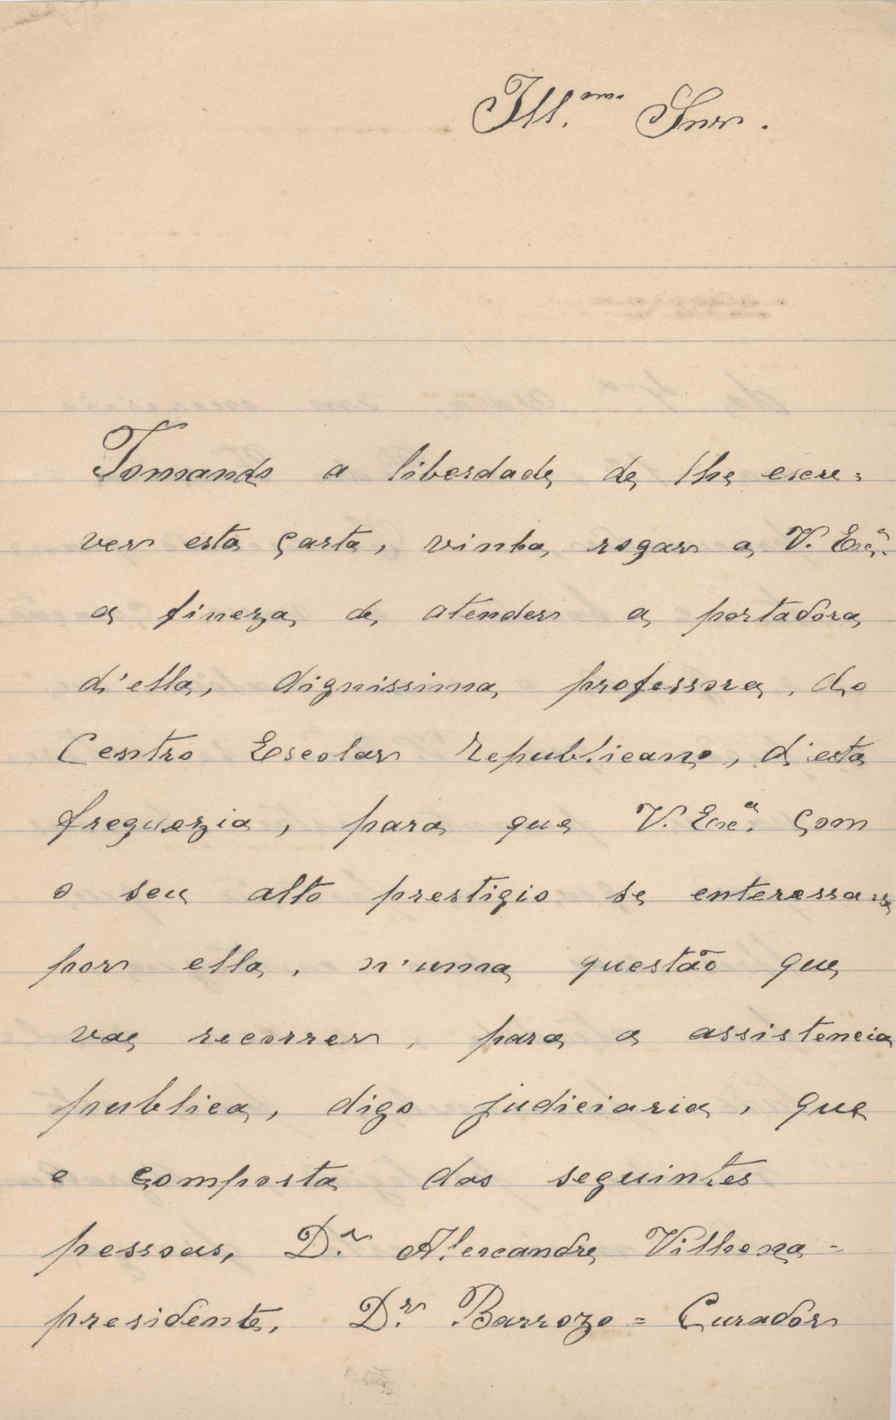 Ill.mo Snr.
Tomando a liberdade de lhe escre=
ver esta carta, vinha rogar a V. Exc.ª
a fineza de atender a portadora
d'ella, dignissima professora, do
Centro Escolar Republicano, d'esta
freguezia, para que V. Exc.ª com
o seu alto prestigio se enteressar
por ella, n'uma questão que
vae recorrer, para a assistencia
publica, digo judiciaria, que
e composta dos seguintes
pessoas, D.r Alexandre Vilhena =
presidente, D.r Barrozo = Curador